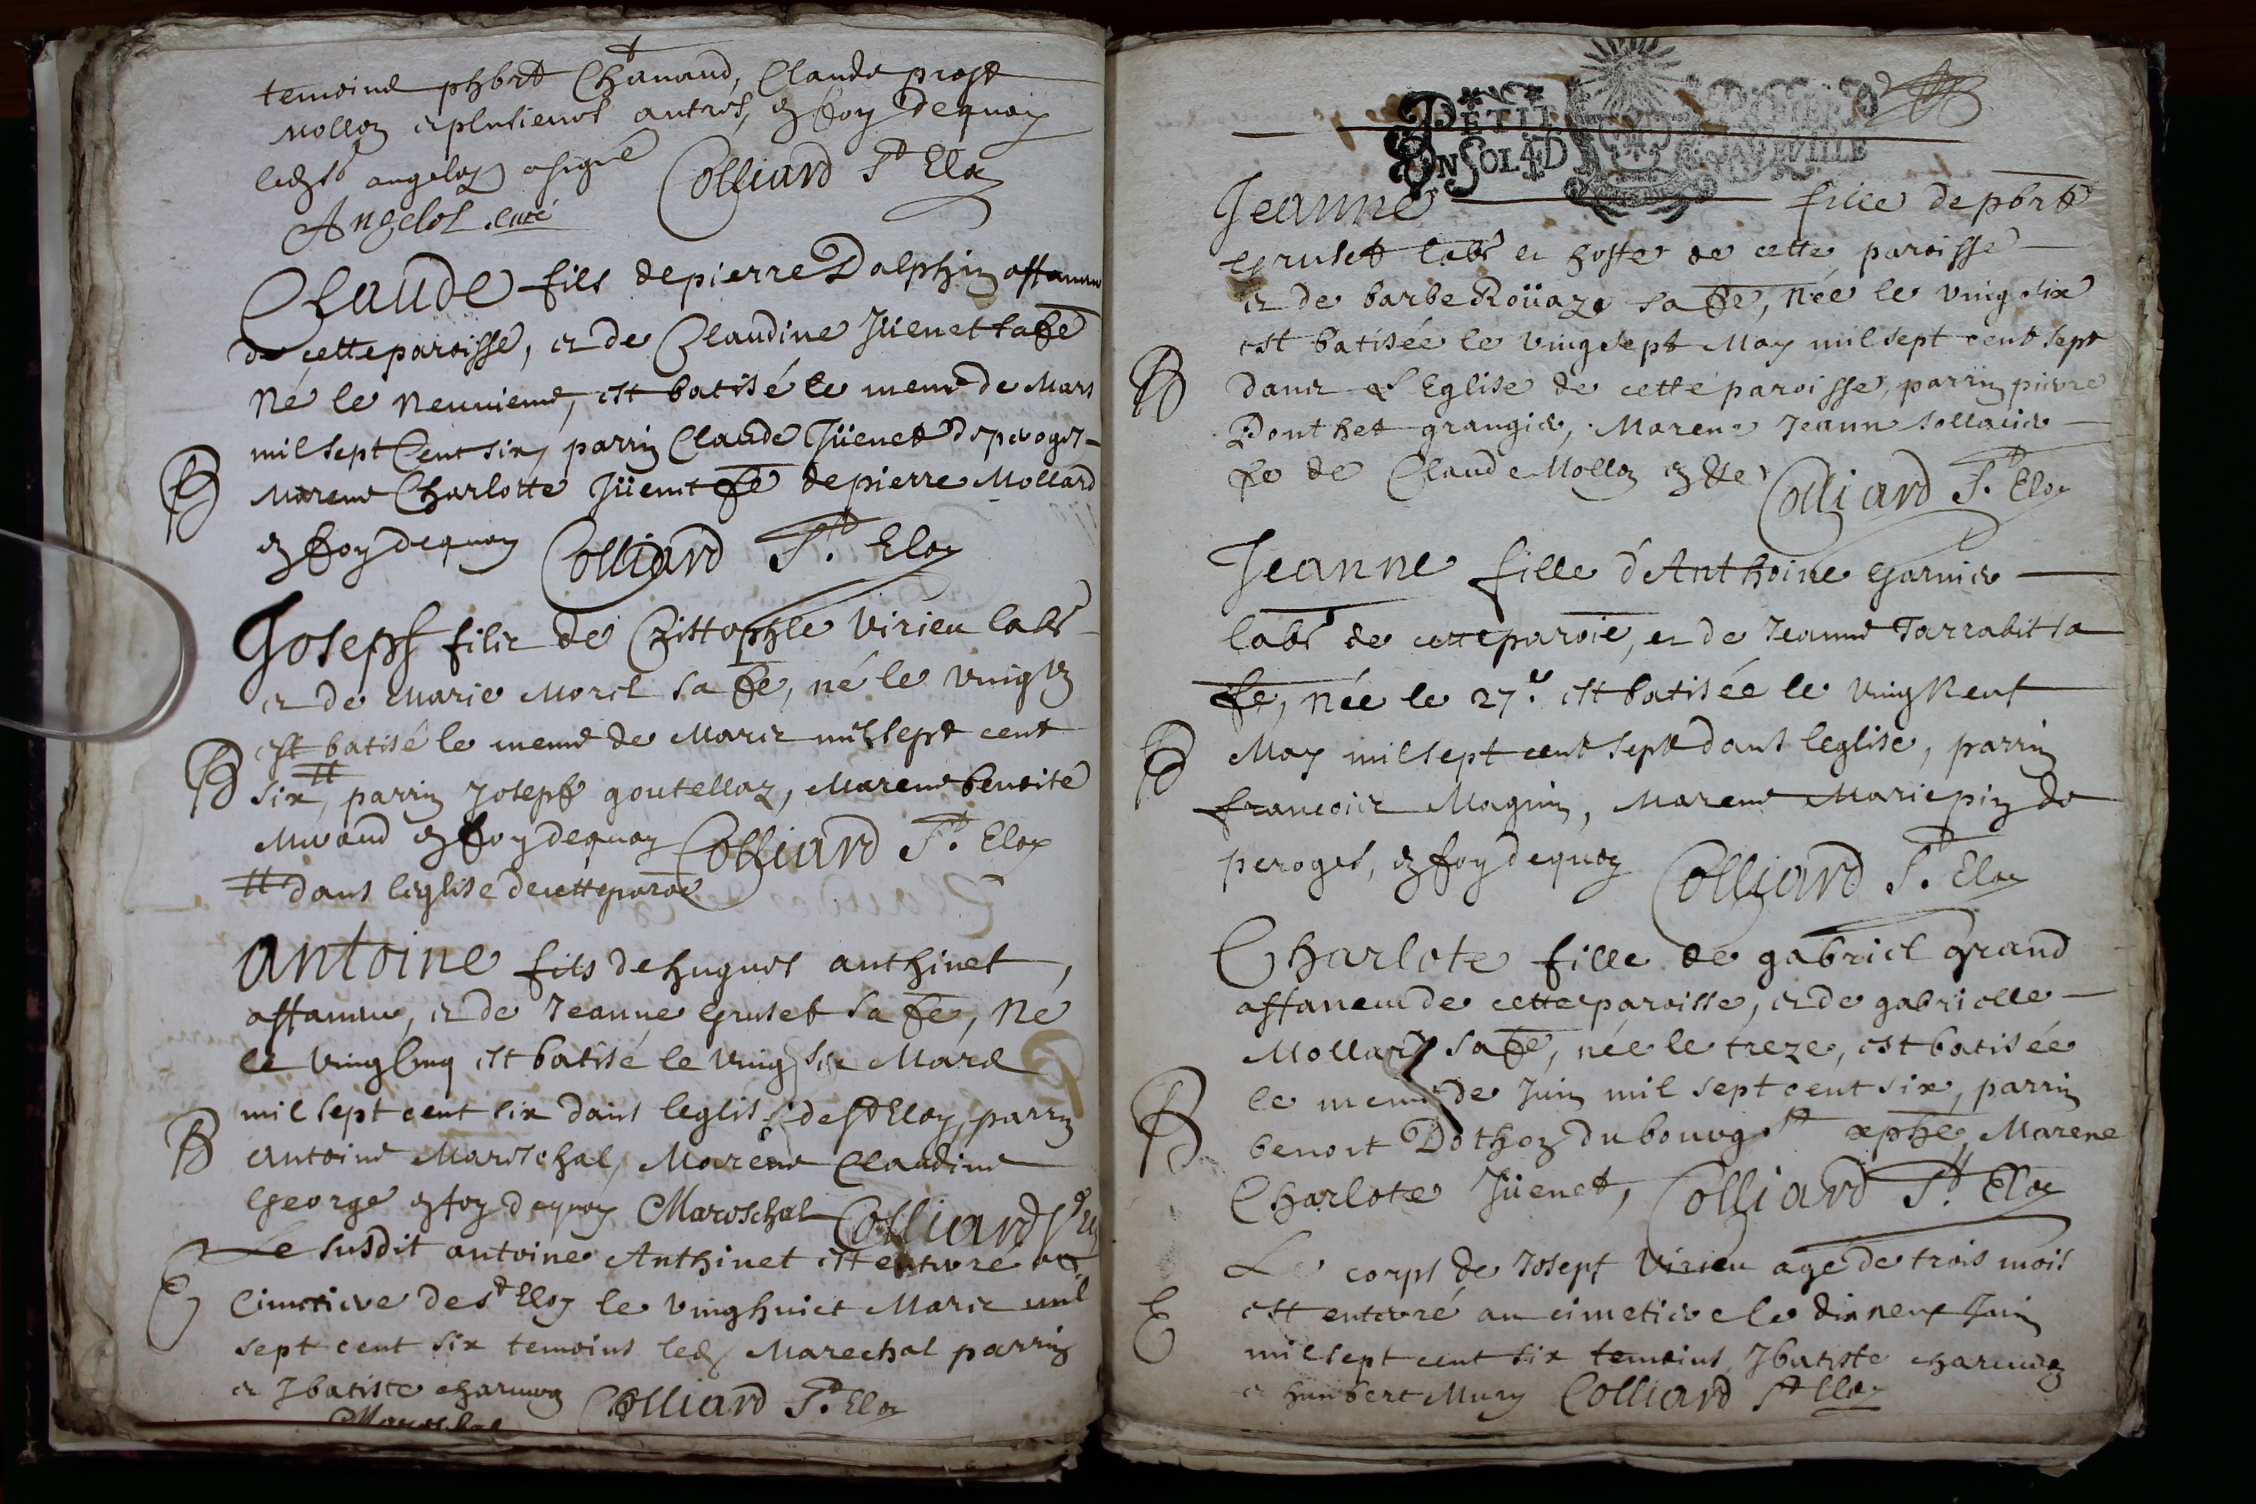 temoins phbrt Chanaud, Claude prost
Molloz et plusieurs autres, en foy dequoy
ledt Sr angeloz a signé Colliard St Eloy
Angelot curé
Claude fils de pierre Dalphin affanneur
de cette paroisse, et de Claudine Jüenet sa fe
Né le neuvieme, est batisé le meme de Mars
mil sept Cent six, parrin Claude Jüenet de peroges
Marene Charlotte Jüenet fe de pierre Mollard
en foy dequoy Colliard St Eloy
Joseph filz de Cristophle Virieu labr
et de Marie Morel sa fe, né le vingt
est batisé le meme de Marz mil sept cent
six, parrin Joseph goutellaz, Marene benoite
en foy dequoy Colliard St. Eloy
dans leglise de cette paroe
Antoine fils de hugues anthinet,
affanneur, et de Jeanne Gruset sa fe, Né
le vingt cinq est batisé le vingt six Mard
mil sept cent six dans leglise de St Eloy, parrin
Antoine Mareschal, Marene Claudine
George en foy dequoy Mareschal Colliard St Eloy
Le susdit antoine Anthinet est enterré au
Cimetiere de St Eloy le vingt huict Marz mil
sept cent six temoins ledt Marechal parrin
et Jbatiste charveyron Colliard St. Eloy
Mareschal
PETIT
UN SOL 4 D
Jeanne fille de pbrt
Gruset labr et hoste de cette paroisse
et de barbe Roüaze sa fe, née le vingt six
est batisée le vingt sept May mil sept cent sept
danz l'Eglise de cette paroisse, parrin pierre
Ponthet grangier, Marene Jeanne sollaire
fe de Claude Molloz en Colliard St. Eloy
Jeanne fille d'Anthoine Garnier
labr de cette paroie, et de Jeanne Tarrabit sa
fe, née le 27.e est batisée le vingt Neuf
May mil sept cent sept dans leglise, parrin
francoiz Magnin, Marene Marie pin de
peroges, en foy dequoy Colliard St. Eloy
Charlote fille de gabriel Grand
affaneur de cette paroisse, et de gabrielle
Mollard sa fe, née le treze, est batisée
le meme de Juin mil sept cent six, parrin
benoit Dothoz du bourg St xphe, Marene
Charlote Jüenet, Colliard St. Eloy
Le corps de Joseph Virieu agé de trois mois
est enterré au cimetiere le dix neuf Juin
mil sept cent six temoins Jbatiste
et humbert Mury Colliard St Eloy